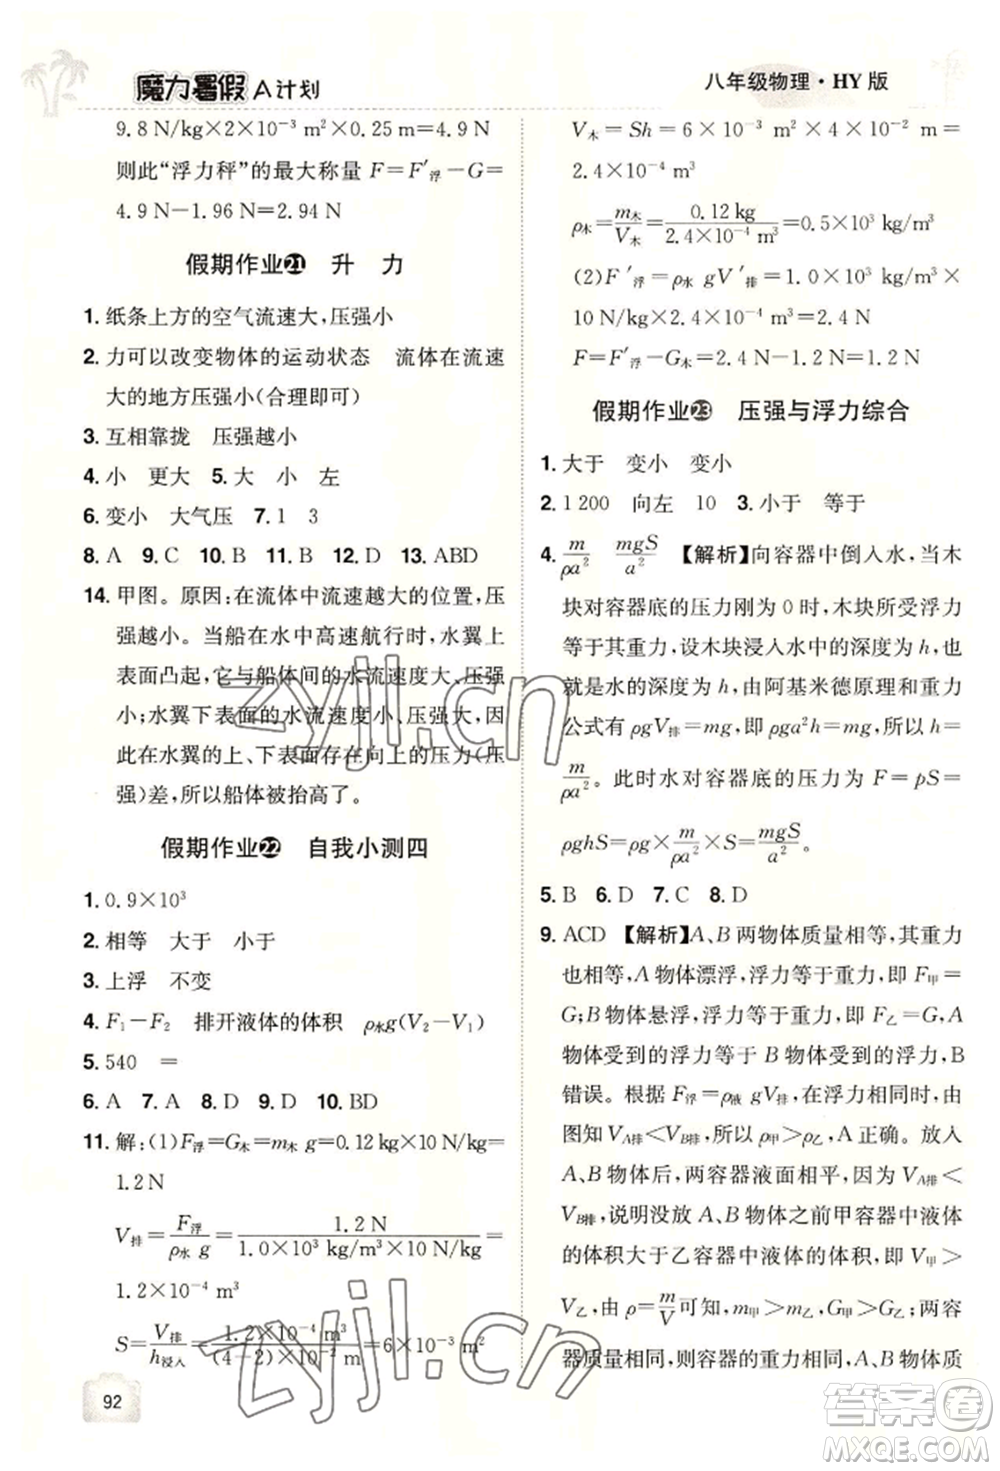 魔力暑假A计划
八年级物理·HY版
9.8 N/kg×2×10⁻³ m²×0.25 m=4.9 N
则此“浮力秤”的最大称量 F=F′浮−G=
4.9 N−1.96 N=2.94 N
假期作业㉑ 升 力
1. 纸条上方的空气流速大,压强小
2. 力可以改变物体的运动状态 流体在流速
大的地方压强小(合理即可)
3. 互相靠拢 压强越小
4. 小 更大 5. 大 小 左
6. 变小 大气压 7. 1 3
8. A 9. C 10. B 11. B 12. D 13. ABD
14. 甲图。原因:在流体中流速越大的位置,压
强越小。当船在水中高速航行时,水翼上
表面凸起,它与船体间的水流速度大,压强
小;水翼下表面的水流速度小,压强大。因
此在水翼的上、下表面存在向上的压力(压
强)差,所以船体被抬高了。
假期作业㉒ 自我小测四
1. 0.9×10³
2. 相等 大于 小于
3. 上浮 不变
4. F₁−F₂ 排开液体的体积 ρ水g(V₂−V₁)
5. 540 =
6. A 7. A 8. D 9. D 10. BD
11. 解:(1)F浮=G木=m木 g=0.12 kg×10 N/kg=
1.2 N
V排=F浮/(ρ水 g)=1.2 N/(1.0×10³ kg/m³×10 N/kg)=
1.2×10⁻⁴ m³
S=V排/h浸入=1.2×10⁻⁴ m³/((4−2)×10⁻² m)=6×10⁻³ m²
92
V木=Sh=6×10⁻³ m²×4×10⁻² m=
2.4×10⁻⁴ m³
ρ木=m木/V木=0.12 kg/(2.4×10⁻⁴ m³)=0.5×10³ kg/m³
(2)F′浮=ρ水 gV′排=1.0×10³ kg/m³×
10 N/kg×2.4×10⁻⁴ m³=2.4 N
F=F′浮−G木=2.4 N−1.2 N=1.2 N
假期作业㉓ 压强与浮力综合
1. 大于 变小 变小
2. 1 200 向左 10 3. 小于 等于
4. m/(ρa²) mgS/a² 【解析】向容器中倒入水,当木
块对容器底的压力刚为0时,木块所受浮力
等于重力,设木块浸入水中的深度为h,h也
就是水的深度,由阿基米德原理和重力
公式有 ρgV排=mg,即 ρga²h=mg,所以 h=
m/(ρa²)。此时水对容器底的压力 F=pS=
ρghS=ρg×m/(ρa²)×S=mgS/a²。
5. B 6. D 7. C 8. D
9. ACD 【解析】A、B两物体质量相等,其重力
也相等,A物体漂浮,浮力等于重力,即 F甲=
G;B物体悬浮,浮力等于重力,即 F乙=G,A
物体受到的浮力等于B物体受到的浮力,B
错误。根据 F浮=ρ液 gV排,在浮力相同时,由
图知 VA排<VB排,所以 ρ甲>ρ乙,A正确。放入
A、B物体后,两容器液面相平,因为 VA排<
VB排,说明没放A、B物体之前甲容器中液体
的体积大于乙容器中液体的体积,即 V甲>
V乙,由 ρ=m/V可知,m甲>m乙,G甲>G乙;两容
器质量相同,则两容器的总质量不相同,因质
zyjl.cn
zyjl.cn
答案卷
MXQE.COM